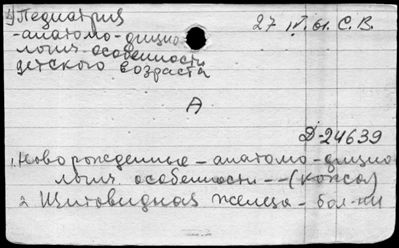 1) Педиатрия
-анатомо-физио
логич. особенности
детского возраста
27 IV. 61. С.В.
А
Д-24639
1. Новорожденные - анатомо-физио
логич. особенности -- (кожа)
2. Щитовидная железа - бол-ни